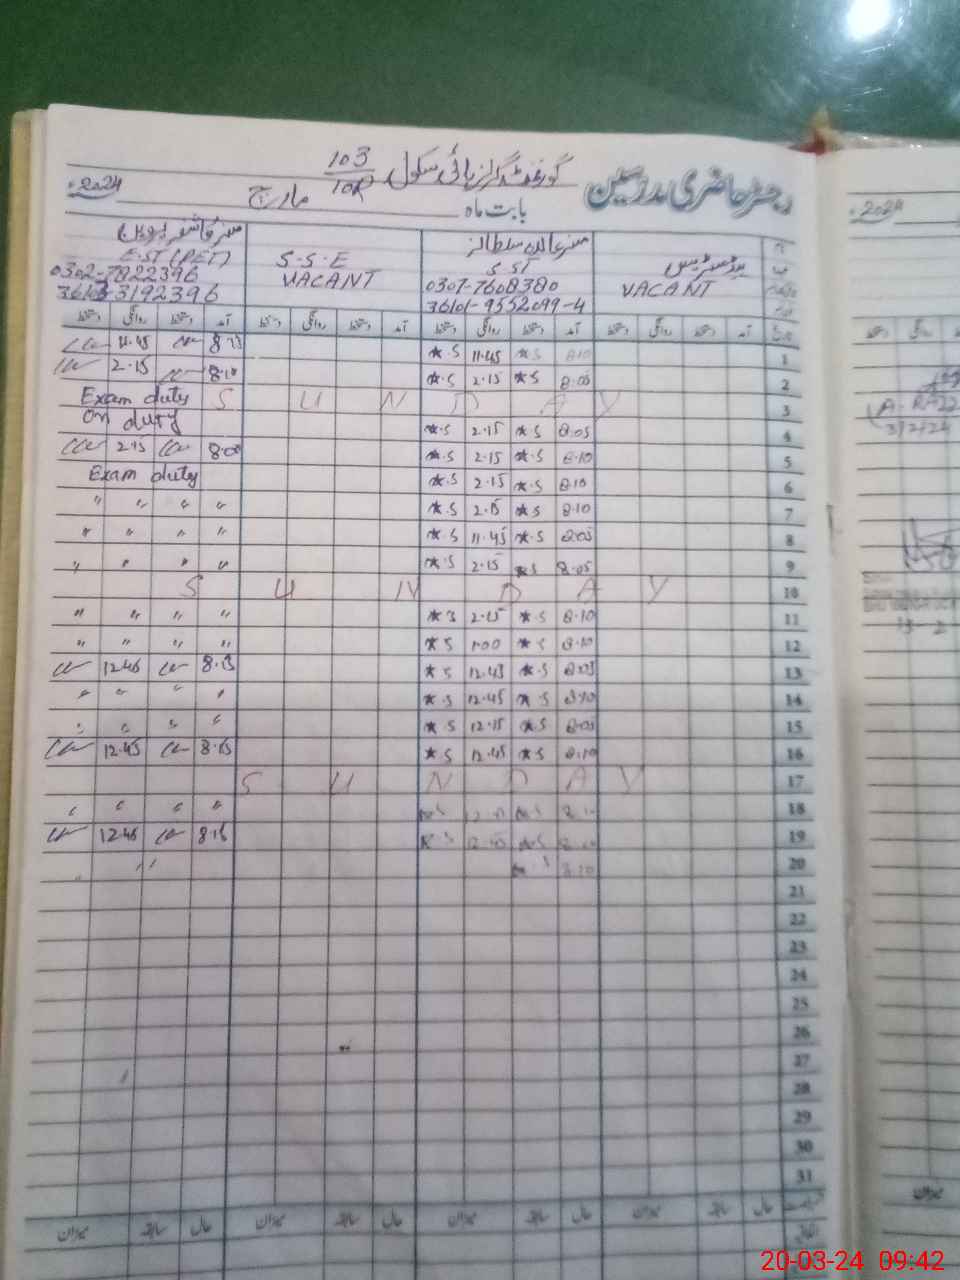 رجسٹر حاضری مدرسین گورنمنٹ گرلز ہائی سکول 103/10R
بابت ماہ مارچ 2024ء
ہیڈمسٹریس
VACANT
S ST
0307-7608380
36101-9552099-4
S.S.E
VACANT
E.ST (PET)
0302-7822396
آمد دستخط روانگی دستخط آمد دستخط روانگی دستخط آمد دستخط روانگی دستخط آمد دستخط روانگی دستخط
1 8.10 *S 11.45 *.S 8.15 11.45
2 8.05 *S 2.15 *.S 8.10 2.15
3 S U N D A Y Exam duty
4 8.05 *S 2.15 *.S On duty
5 8.10 *S 2.15 *.S 8.00 2.15
6 8.10 *S 2.15 *.S Exam duty
7 8.10 *S 2.15 *.S " " " "
8 8.05 *.S 11.45 *.S " " " "
9 8.05 *S 2.15 *.S " " " "
10 S U N D A Y
11 8.10 *.S 2.15 *S " " " "
12 8.10 *S 1.00 *S " " " "
13 8.05 *.S 12.45 *S 8.15 12.45
14 8.10 *.S 12.45 *.S " " " "
15 8.05 *.S 12.15 *.S " " " "
16 8.10 *S 12.45 *.S 8.15 12.45
17 S U N D A Y
18 8.10 *.S *.S " " " "
19 *S 12.45 *.S 8.15 12.45
20 8.10 *.S "
21
22
23
24
25
26
27
28
29
30
31
حال سابقہ میزان حال سابقہ میزان حال سابقہ میزان حال سابقہ میزان
2024ء
20-03-24 09:42